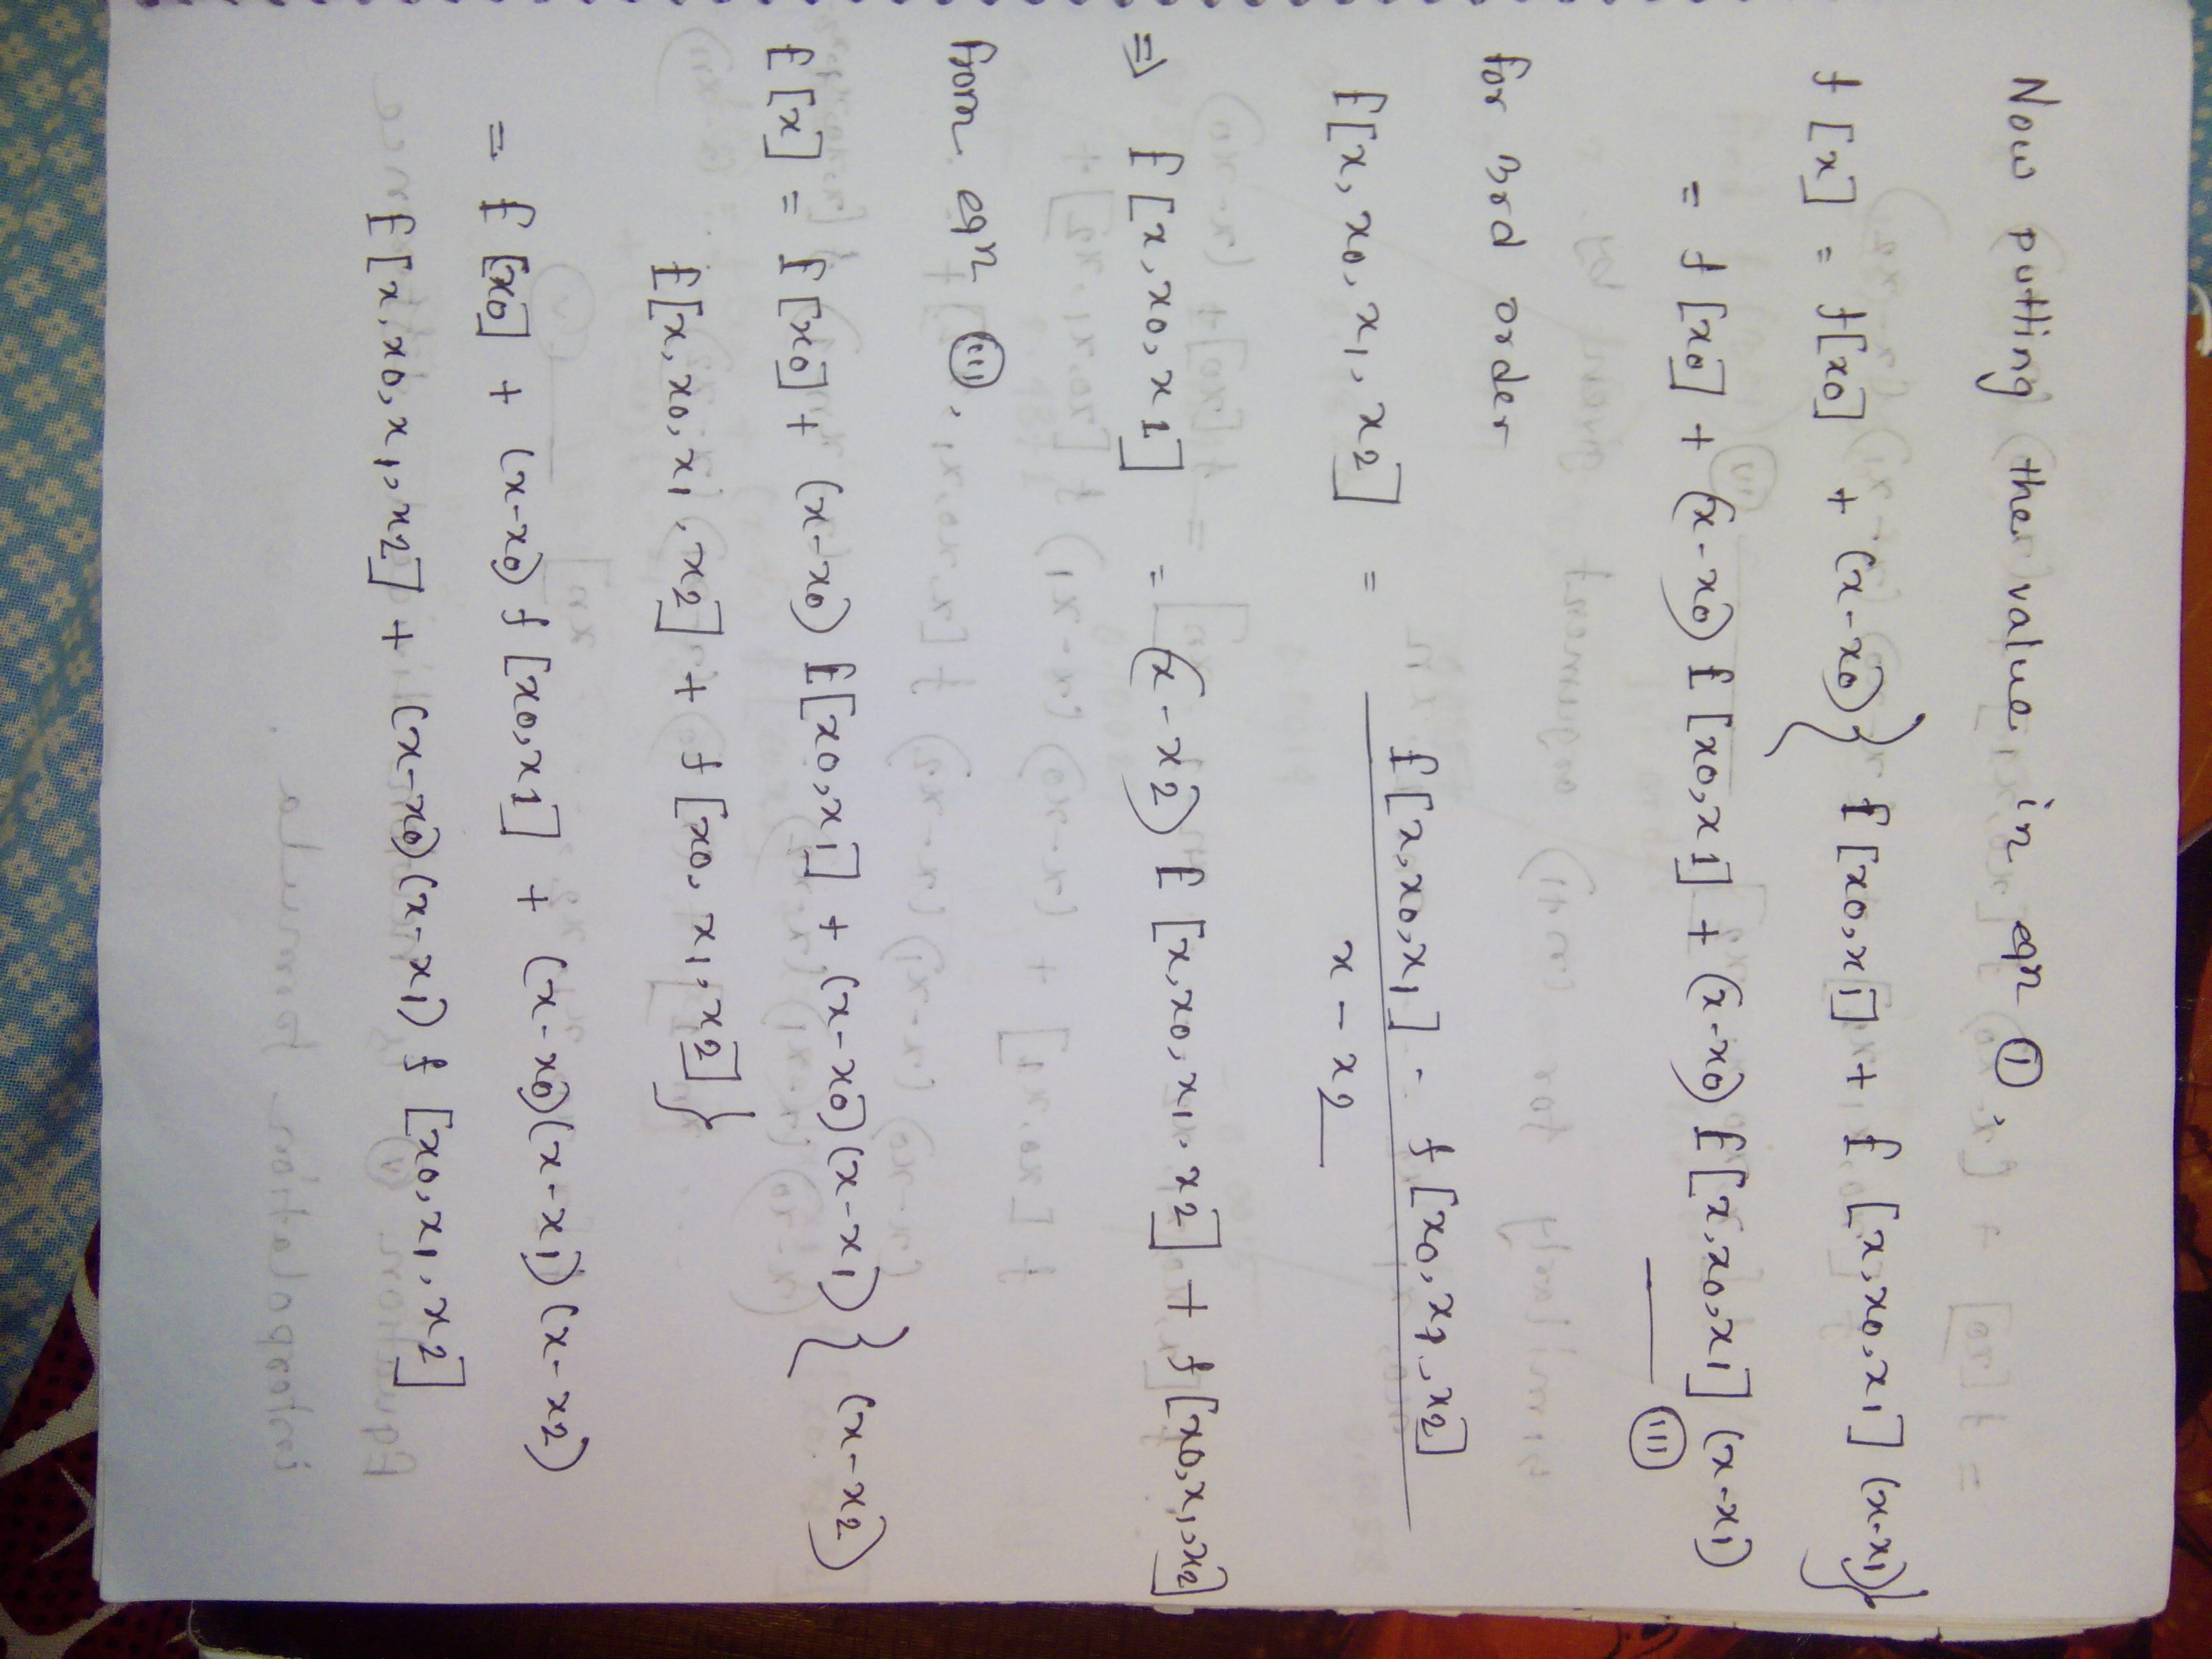 Now putting the value in eqn ①,
f [x] = f[x0] + (x-x0) { f [x0,x1] + f [x,x0,x1] (x-x1)}
= f [x0] + (x-x0) f [x0,x1] + (x-x0) f [x,x0,x1] (x-x1)
— (iii)
for 3rd order
f[x, x0, x1, x2] = f[x,x0,x1] - f [x0,x1,x2]
x - x2
⇒ f [x,x0,x1] = (x-x2) f [x,x0,x1,x2] + f [x0,x1,x2]
from eqn (iii),
f [x] = f [x0] + (x-x0) f[x0,x1] + (x-x0)(x-x1) { (x-x2)
f[x,x0,x1,x2] + f [x0,x1,x2] }
= f [x0] + (x-x0) f [x0,x1] + (x-x0)(x-x1)(x-x2)
f [x,x0,x1,x2] + (x-x0)(x-x1) f [x0,x1,x2]